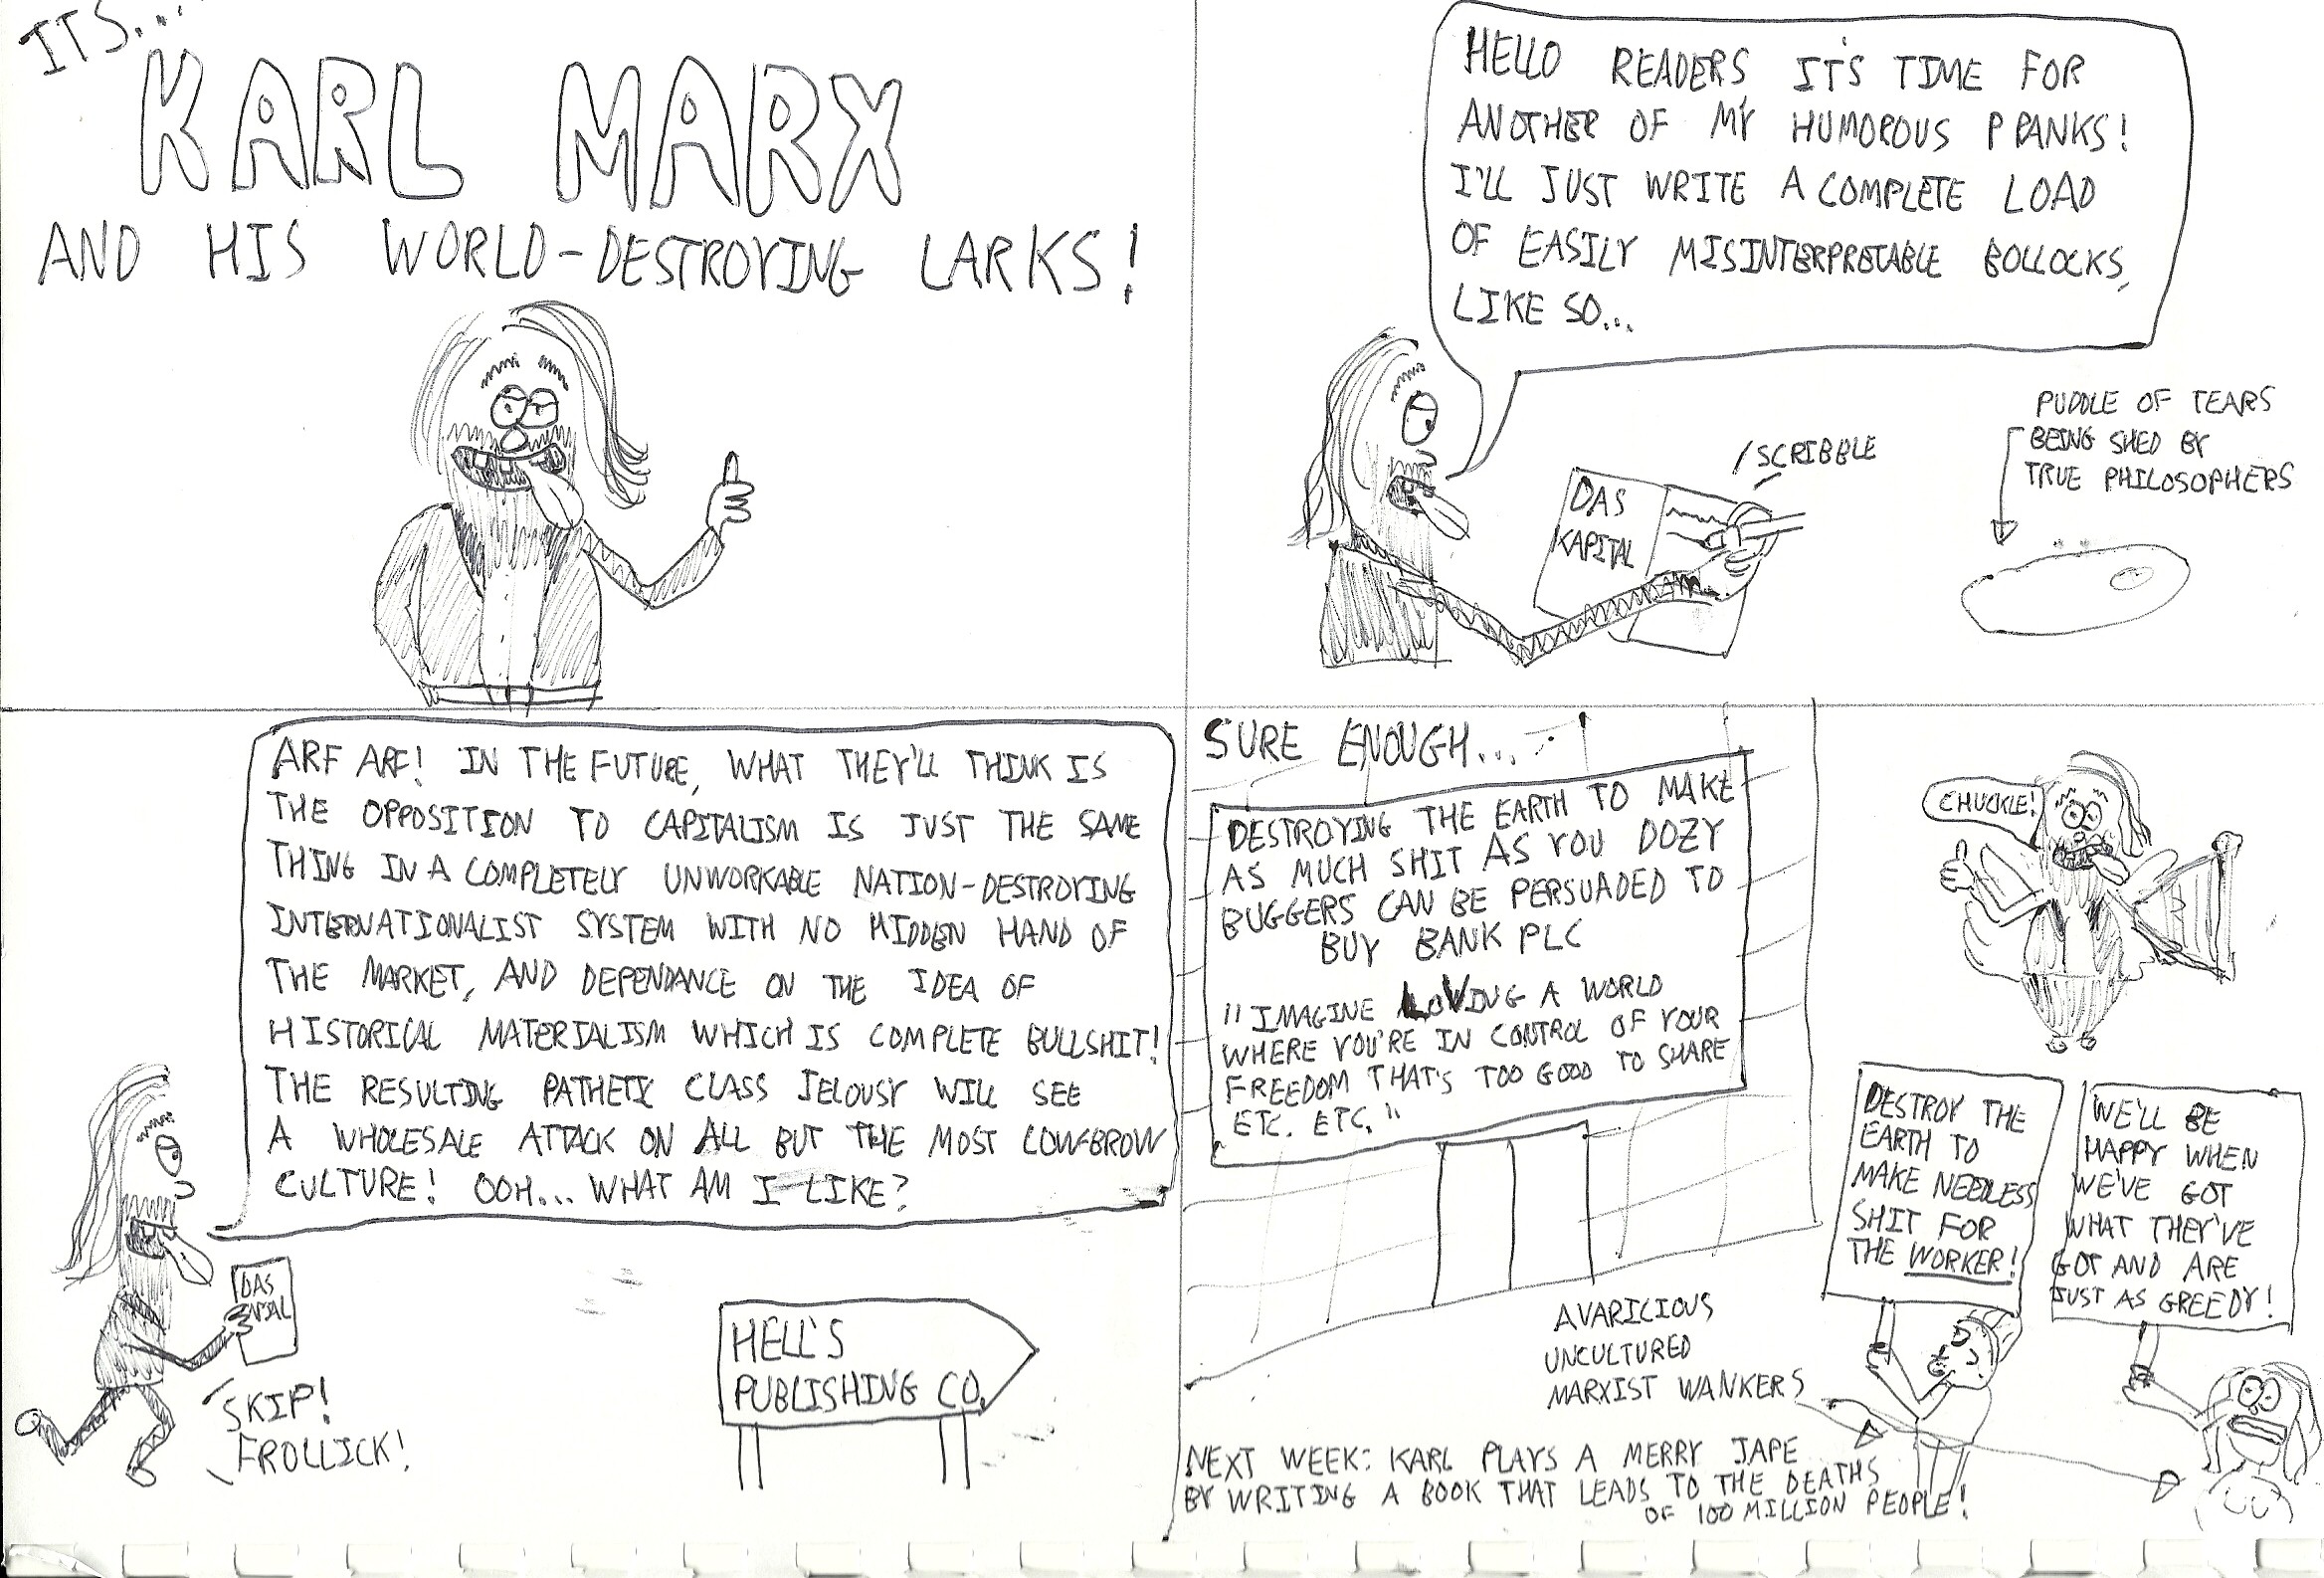 ITS...
KARL MARX
AND HIS WORLD-DESTROYING LARKS!
HELLO READERS IT'S TIME FOR
ANOTHER OF MY HUMOROUS PRANKS!
I'LL JUST WRITE A COMPLETE LOAD
OF EASILY MISINTERPRETABLE BOLLOCKS,
LIKE SO...
SCRIBBLE
DAS
KAPITAL
PUDDLE OF TEARS
BEING SHED BY
TRUE PHILOSOPHERS
ARF ARF! IN THE FUTURE, WHAT THEY'LL THINK IS
THE OPPOSITION TO CAPITALISM IS JUST THE SAME
THING IN A COMPLETELY UNWORKABLE NATION-DESTROYING
INTERNATIONALIST SYSTEM WITH NO HIDDEN HAND OF
THE MARKET, AND DEPENDANCE ON THE IDEA OF
HISTORICAL MATERIALISM WHICH IS COMPLETE BULLSHIT!
THE RESULTING PATHETIC CLASS JELOUSY WILL SEE
A WHOLESALE ATTACK ON ALL BUT THE MOST LOW-BROW
CULTURE! OOH... WHAT AM I LIKE?
DAS
SKIP!
FROLLICK!
HELL'S
PUBLISHING CO.
SURE ENOUGH...
DESTROYING THE EARTH TO MAKE
AS MUCH SHIT AS YOU DOZY
BUGGERS CAN BE PERSUADED TO
BUY BANK PLC
"IMAGINE LOVING A WORLD
WHERE YOU'RE IN CONTROL OF YOUR
FREEDOM THAT'S TOO GOOD TO SHARE
ETC. ETC."
CHUCKLE!
DESTROY THE
EARTH TO
MAKE NEEDLESS
SHIT FOR
THE WORKER!
WE'LL BE
HAPPY WHEN
WE'VE GOT
WHAT THEY'VE
GOT AND ARE
JUST AS GREEDY!
AVARICIOUS
UNCULTURED
MARXIST WANKERS
NEXT WEEK: KARL PLAYS A MERRY JAPE
BY WRITING A BOOK THAT LEADS TO THE DEATHS
OF 100 MILLION PEOPLE!